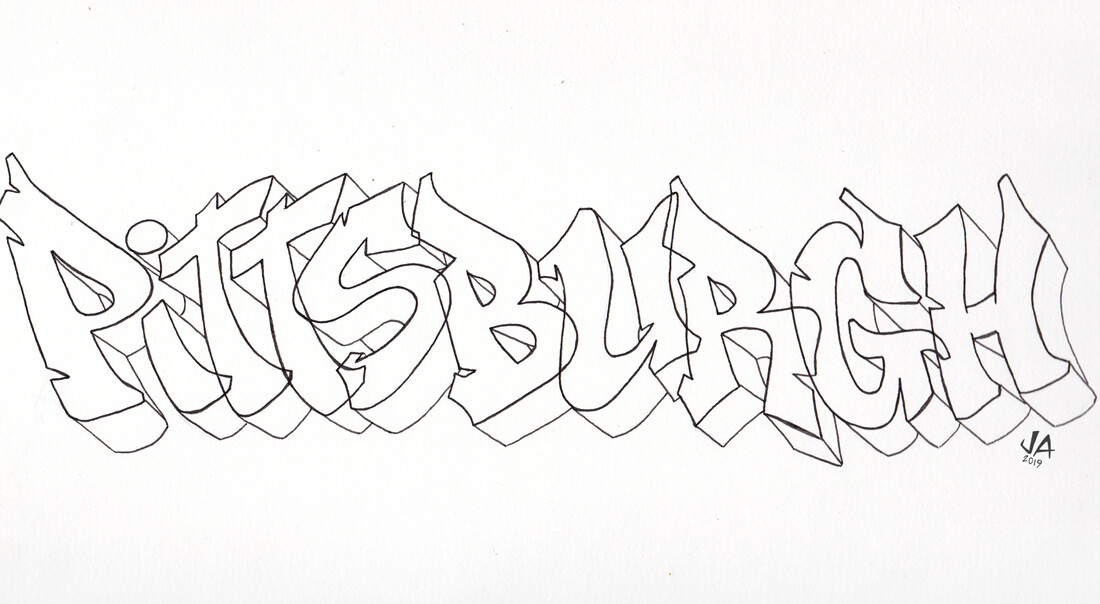 PiTTSBURGH
JA
2019